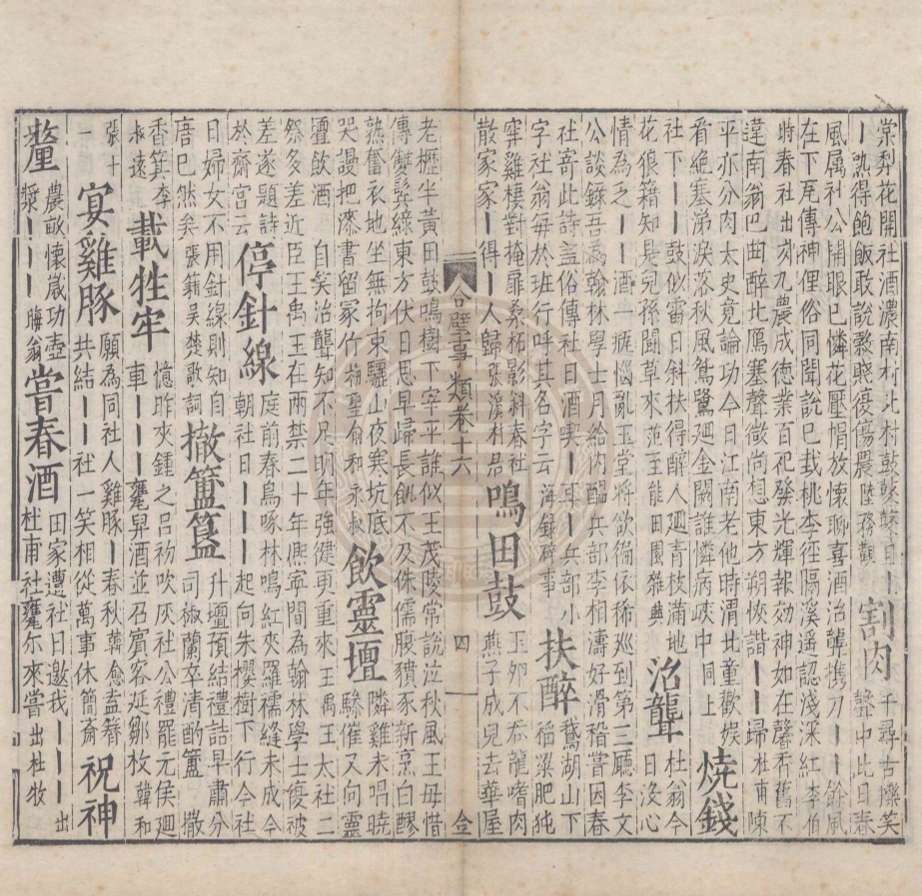 棠梨花開社酒濃南村北村皷鼕鼕且
熟得飽飯敢說穀賤復傷農陸務觀
割肉
千尋古櫟笑
聲中此日春
風属社公開眼已憐花壓帽放懷聊喜酒治聾携刀餘風
在下瓦傳神俚俗同聞說已栽桃李徑隔溪遥認淺深紅李伯
時春社出郊九農成德業百祀發光輝報効神如在馨香舊不
違南翁巴曲醉北鴈塞聲微尚想東方朔詼諧歸杜甫陳
平亦分肉太史竟論功今日江南老他時渭北童歡娛
看絶塞涕淚落秋風鴛鷺廻金闕誰憐病峽中同上
燒錢
社下鼓似雷日斜扶得醉人廻青枝滿地
花狼籍知是兒孫鬭草來范至能田園雜興
治聾
杜翁今
日沒心
情為之酒一瓶惱亂玉堂將欲徧依稀巡到第三廳李文
公談錄吾為翰林學士月給内醖兵部李相濤好滑稽嘗因春
社寄此詩言俗傳社日酒喫耳兵部小
字社翁每於班行呼其名字云海録碎事
扶醉
鵝湖山下
稻粱肥㹠
穽雞棲對掩扉桑柘影斜春社
散家家得人歸張演村居
鳴田鼓
玉夘不吞龍嗜肉
燕子成兒去華屋
合璧事類卷十六
四
老櫪半黄田鼓鳴樹下宰平誰似王茂陵常說泣秋風王毋惜
傳雙鬂綠東方伏日思早歸長飢不及侏儒腹豶豕新烹白醪
熟奮衣地坐無拘束驪山夜寒坑底
哭謾把漆書留冢竹梅聖俞和永叔
飲靈壇
隣雞未唱曉
驂催又向靈
壇飲酒 自笑治聾知不足明年強健更重來王禹玉太社二
祭多差近臣王禹玉在兩禁二十年熈寧間為翰林學士復被
差遂題詩
於齋宫云
停針線
庭前春鳥啄林鳴紅夾羅襦縫未成今
朝社日起向朱櫻樹下行今社
日婦女不用針線則知自
唐已然矣張籍吳楚歌詞
撤簠簋
升壇預結禮詰早肅分
司椒蘭卒清酌簠撒
香箕李
叔遠
載牲牢
憶昨夾鍾之吕初吹灰社公禮罷元侯廻
車甕舁酒並召賔客延鄒枚韓和
張十
一
宴雞豚
願為同社人雞豚春秋韓愈盍簪
共結社一笑相從萬事休簡齋
祝神
釐
農畝懷歲功壺
漿晦翁
嘗春酒
田家遭社日邀我出
杜甫社甕尓來嘗出杜牧